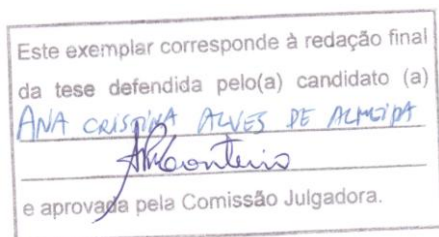 Este exemplar corresponde à redação final
da tese defendida pelo(a) candidato (a)
ANA CRISTINA ALVES DE ALMEIDA
e aprovada pela Comissão Julgadora.